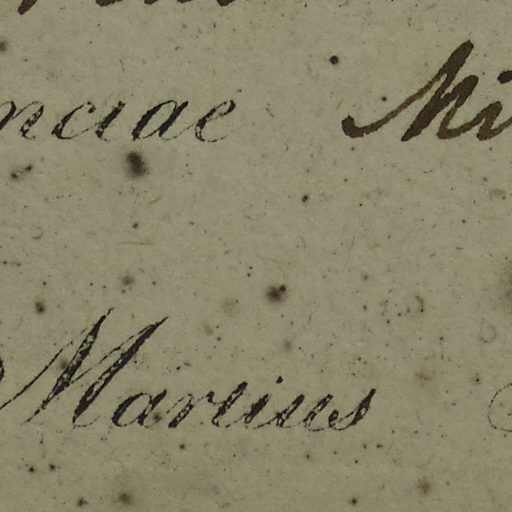 nciae Mi
Martius